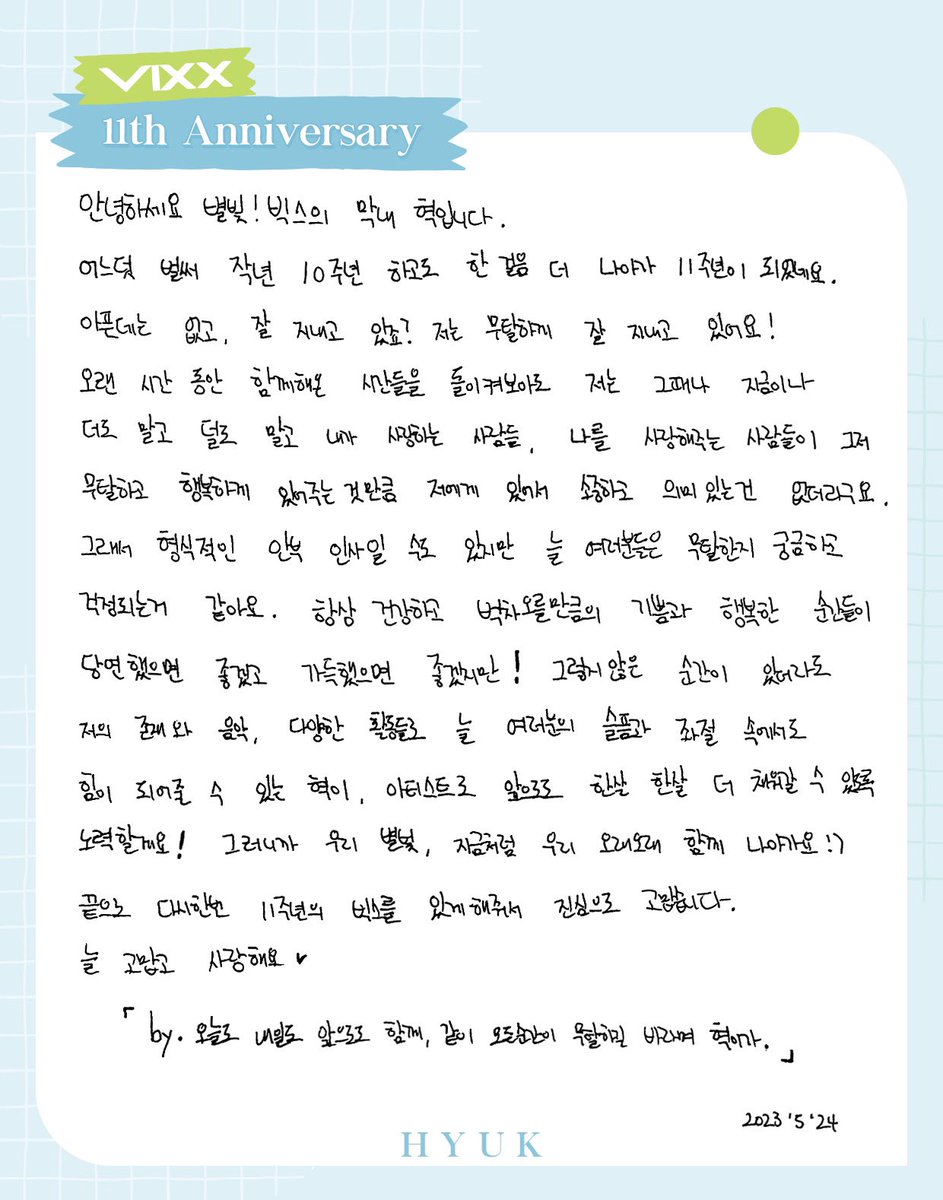 VIXX
11th Anniversary
안녕하세요 별빛! 빅스의 막내 혁입니다.
어느덧 벌써 작년 10주년 하고도 한 걸음 더 나아가 11주년이 되었네요.
아픈데는 없고, 잘 지내고 있죠? 저는 무탈하게 잘 지내고 있어요!
오랜 시간 동안 함께해온 시간들을 돌이켜보아도 저는 그때나 지금이나
더도 말고 덜도 말고 내가 사랑하는 사람들, 나를 사랑해주는 사람들이 그저
무탈하고 행복하게 있어주는 것만큼 저에게 있어서 소중하고 의미 있는건 없더라구요.
그래서 형식적인 안부 인사일 수도 있지만 늘 여러분들은 무탈한지 궁금하고
걱정되는거 같아요. 항상 건강하고 벅차오를만큼의 기쁨과 행복한 순간들이
당연했으면 좋겠고 가득했으면 좋겠지만! 그렇지 않은 순간이 있더라도
저의 존재와 음악, 다양한 활동들로 늘 여러분의 슬픔과 좌절 속에서도
힘이 되어줄 수 있는 혁이, 아티스트로 앞으로도 한살 한살 더 채워갈 수 있도록
노력할게요! 그러니까 우리 별빛, 지금처럼 우리 오래오래 함께 나아가요 :)
끝으로 다시한번 11주년의 빅스를 있게 해줘서 진심으로 고맙습니다.
늘 고맙고 사랑해요 ♥
「by. 오늘도 내일도 앞으로도 함께, 같이 모든순간이 무탈하길 바라며 혁이가.」
2023 '5 '24
HYUK